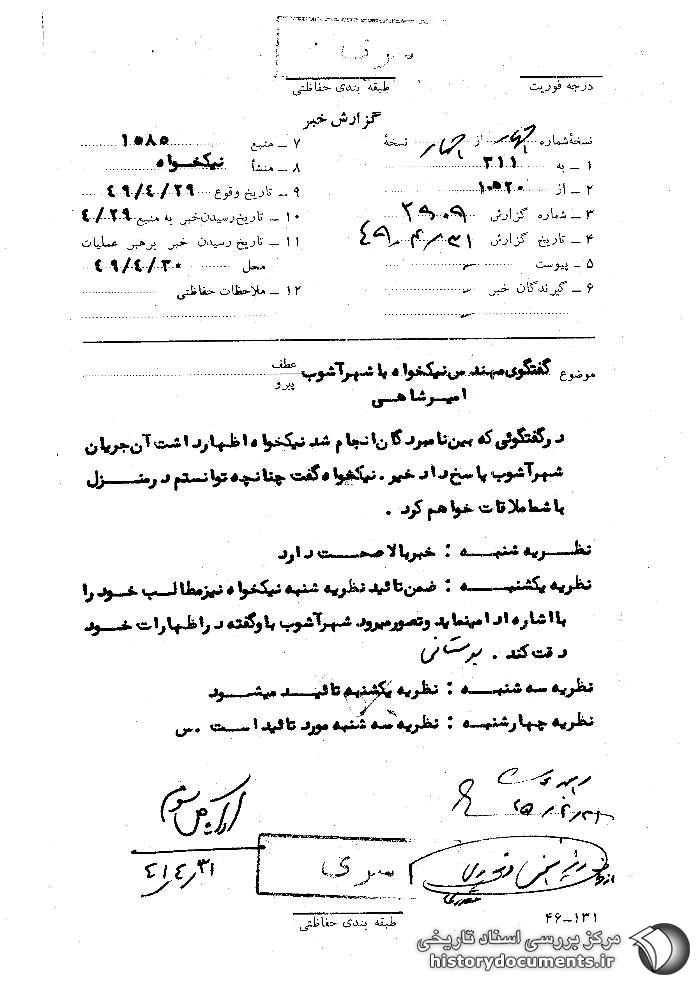 سری
درجه فوریت
طبقه بندی حفاظتی
گزارش خبر
نسخهٔ شماره از نسخهٔ
۱ ـ به ۳۱۱
۲ ـ از ۱۰ه۲۰
۳ ـ شماره گزارش ۲۹۰۹
۴ ـ تاریخ گزارش ۴۹/۴/۳۱
۵ ـ پیوست
۶ ـ گیرندگان خبر
۷ ـ منبع ۱۰۸۵
۸ ـ منشأ نیکخواه
۹ ـ تاریخ وقوع ۴۹/۴/۲۹
۱۰ ـ تاریخ رسیدن خبر به منبع ۴/۲۹
۱۱ ـ تاریخ رسیدن خبر برهبر عملیات
محل ۴۹/۴/۳۰
۱۲ ـ ملاحظات حفاظتی
موضوع گفتگوی مهندس نیکخواه با شهرآشوب
امیرشاهی
عطف
پیرو
در گفتگوئی که بین نامبردگان انجام شد نیکخواه اظهارداشت آن جریان
شهرآشوب پاسخ داد خیر . نیکخواه گفت چنانچه توانستم در منزل
با شما ملاقات خواهم کرد .
نظریه شنبه : خبر بالا صحت دارد
نظریه یکشنبه : ضمن تائید نظریه شنبه نیکخواه نیز مطالب خود را
با اشاره ادا مینماید و تصور میرود شهرآشوب باو گفته در اظهارات خود
دقت کند . بوستانی
نظریه سه شنبه : نظریه یکشنبه تائید میشود
نظریه چهارشنبه : نظریه سه شنبه مورد تائید است . س
۴۹/۴/۳۱
سری
طبقه بندی حفاظتی
۴۶-۱۳۱
مرکز بررسی اسناد تاریخی
historydocuments.ir